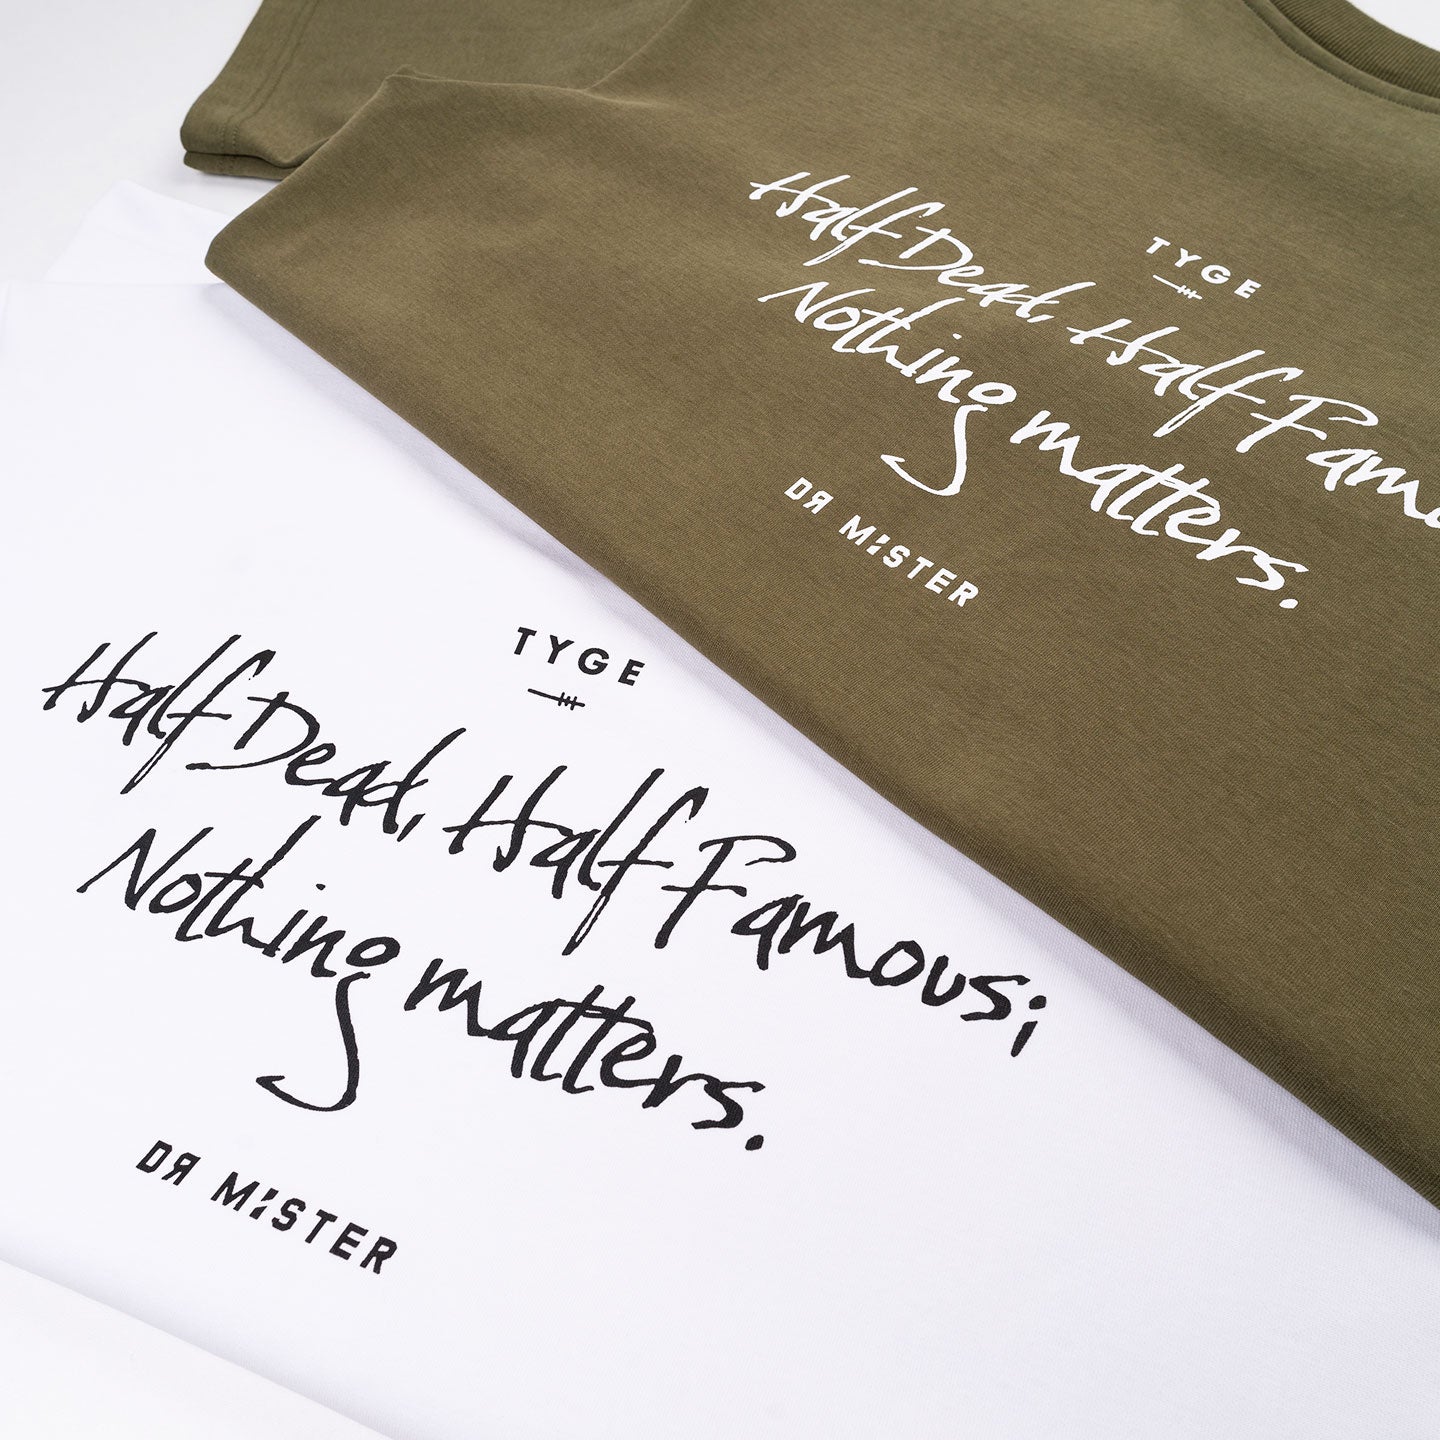 TYGE
Half Dead, Half Famou
Nothing matters.
DR MISTER
TYGE
Half Dead, Half Famous;
Nothing matters.
DR MISTER